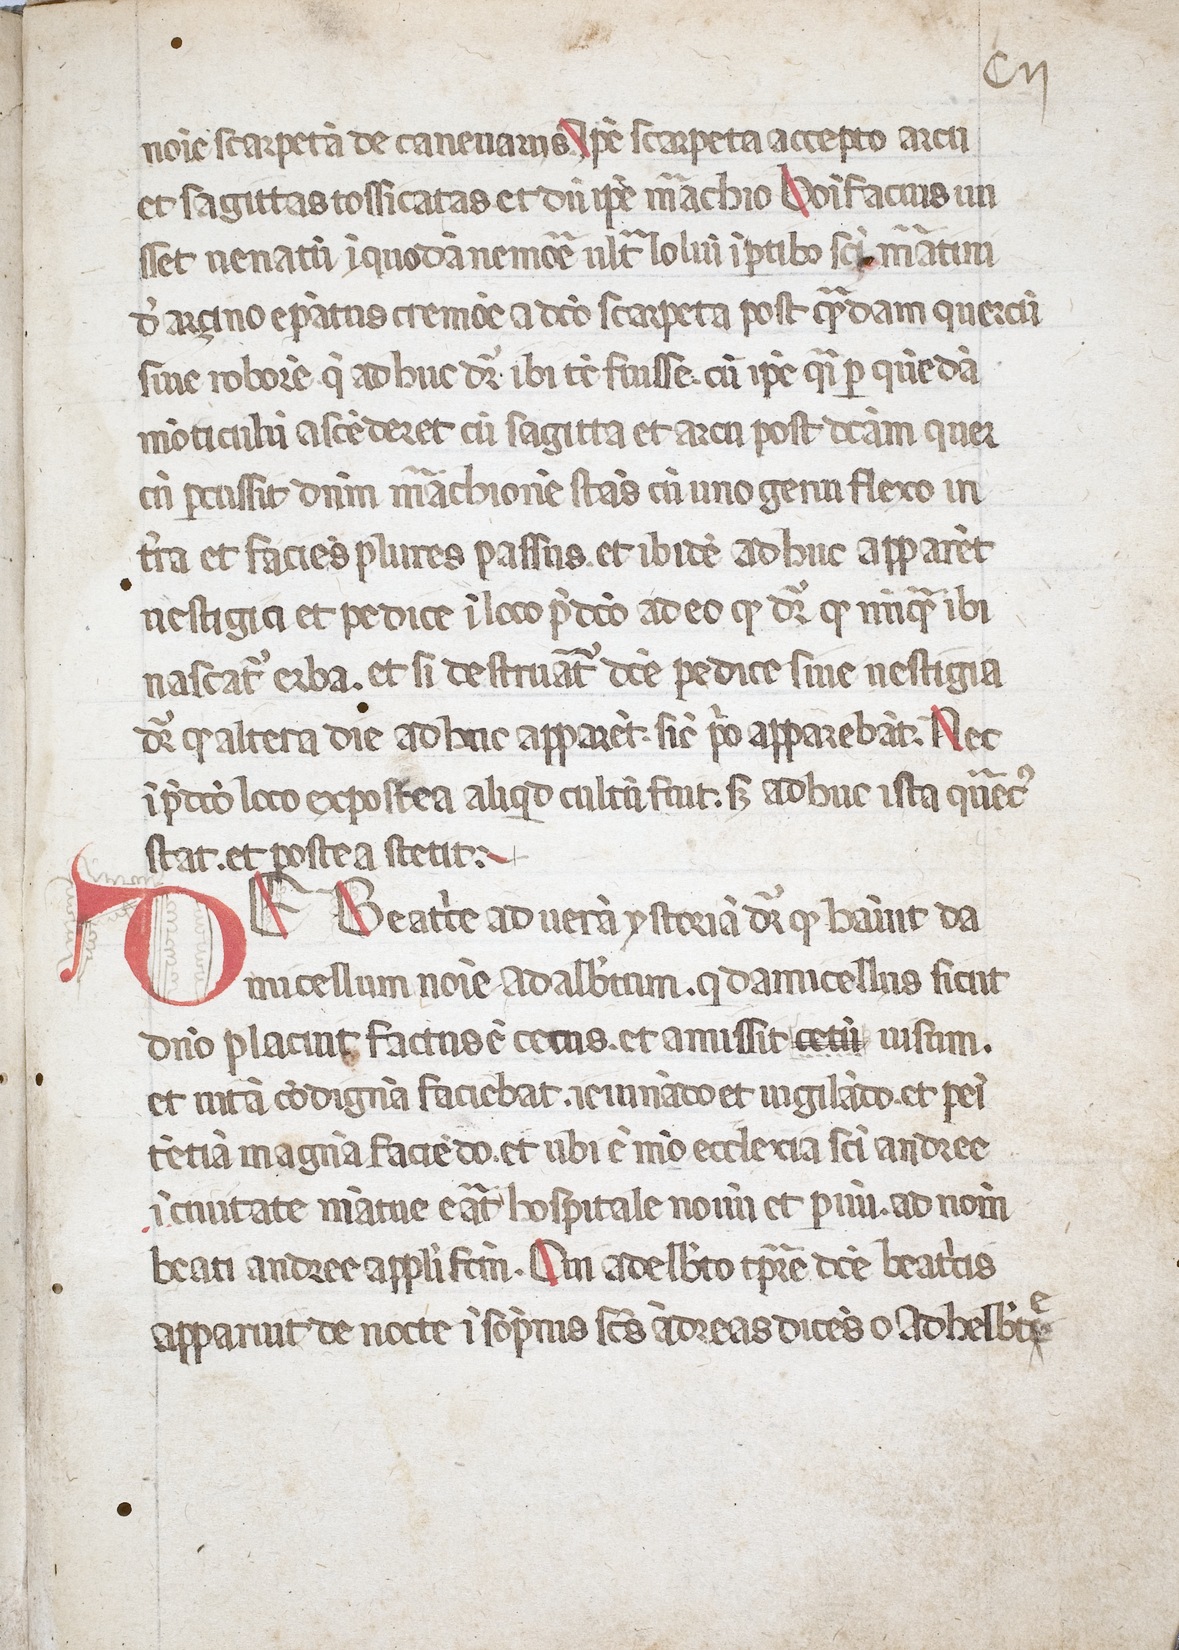 CII
noīe scarpetā de caneuarijs. Ip̄e scarpeta accepto arcu
et sagittas tossicatas et dū ip̄e m̄achio Bonifacius iui
sset uenatū ī quodā nemōe ult̄ lolui ī ptibo sc̄i m̄atini
d̄ argino ep̄atus cremōe a dc̄o scarpeta post q̄dam quercū
siue roborē q̄ adhuc dr̄ ibi tē fuisse. cū ip̄e q̄i p quēdā
mōticulū ascēderet cū sagitta et arcu post dc̄am quer
cū pcussit dn̄m m̄achionē stās cū uno genu flexo in
tr̄a et faciēs plures passus. et ibidē adhuc apparēt
uestigia et pedice ī loco p̄dc̄o adeo q dr̄ q nūq̄ ibi
nascat̄ erba. et si destruāt̄ dc̄e pedice siue uestigia
dr̄ q altera die adhuc apparēt. sic̄ p̄o apparebāt. Nec
ī p̄dc̄o loco expostea aliqd cultū fuit. s; adhuc ista quēc᾽
stat. et postea stetit.
DE Beatr̄ce ad uerā ystoriā dr̄ q hāuit da
micellum noīe Adalb̄tum. q damicellus sicut
dn̄o placuit factus ē cecus. et amissit cetū uisum.
et uitā cōdignā faciebat. ieiunādo et uigilādo. et pei
tētiā magnā faciēdo. et ubi ē mō ecclexia sc̄i andree
ī ciuitate mātue eāt̄ hospitale nouū et puū. ad noīm
beati andree appl̄i fc̄m. Cui adelb̄to tp̄re dc̄e beatr̄cis
apparuit de nocte ī sōp̄nis sc̄s ādreas dicēs o Adhelb̄te